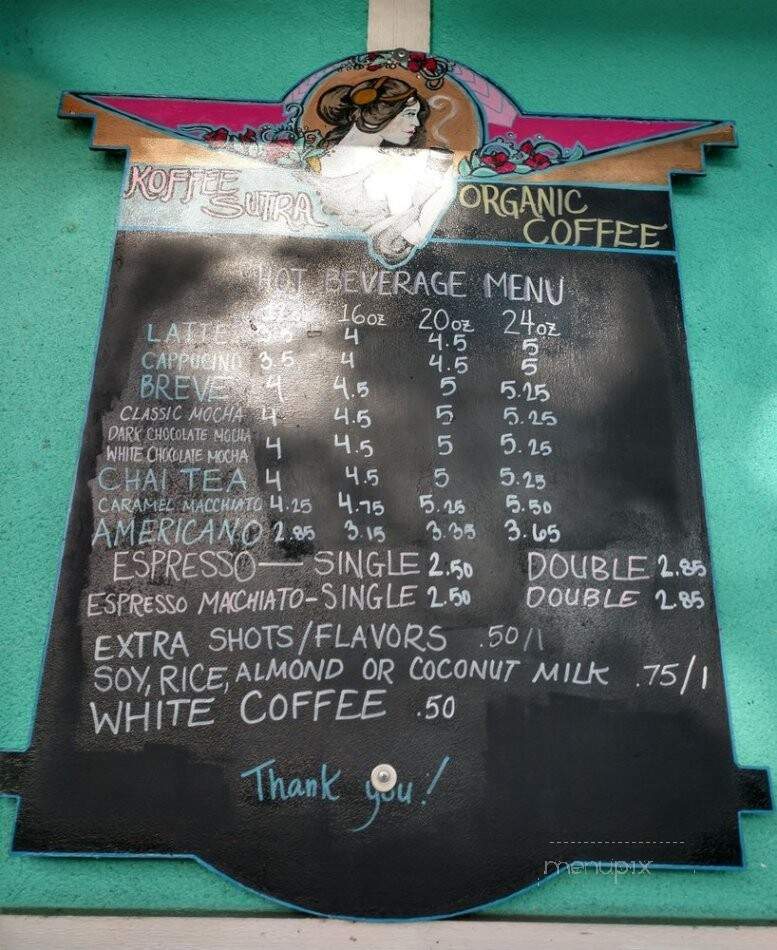 KOFFEE SUTRA
ORGANIC COFFEE
HOT BEVERAGE MENU
16oz 20oz 24oz
LATTE 4 4.5 5
CAPPUCINO 3.5 4 4.5 5
BREVE 4 4.5 5 5.25
CLASSIC MOCHA 4 4.5 5 5.25
DARK CHOCOLATE MOCHA
WHITE CHOCOLATE MOCHA 4 4.5 5 5.25
CHAI TEA 4 4.5 5 5.25
CARAMEL MACCHIATO 4.25 4.75 5.25 5.50
AMERICANO 2.85 3.15 3.35 3.65
ESPRESSO — SINGLE 2.50 DOUBLE 2.85
ESPRESSO MACCHIATO - SINGLE 2.50 DOUBLE 2.85
EXTRA SHOTS/FLAVORS .50/1
SOY, RICE, ALMOND OR COCONUT MILK .75/1
WHITE COFFEE .50
Thank you!
menupix